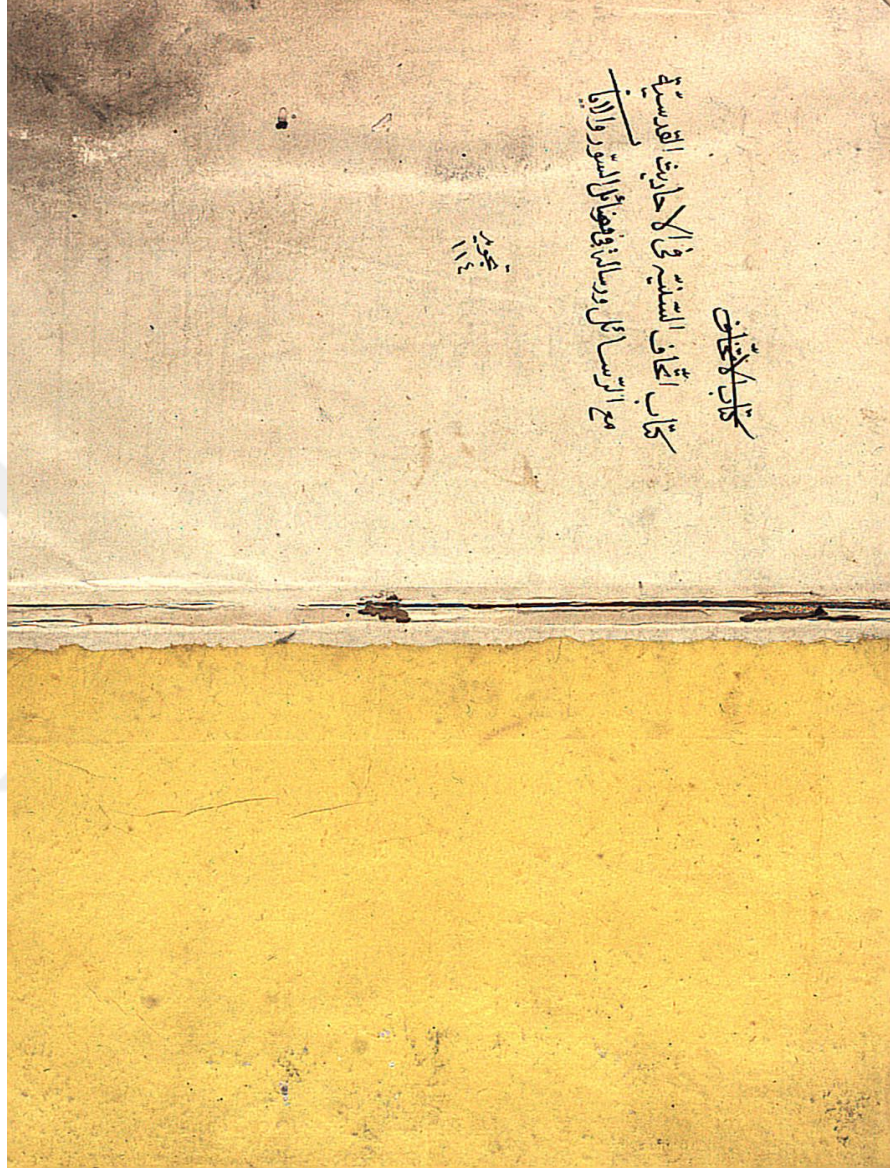 كتاب الاتحاف
كتاب اتحاف السَّنيّه فى الاحاديث القدسيّة
مع الرّسائل ورسالة فى فضائل السّور والايات
تجويد
١١٤